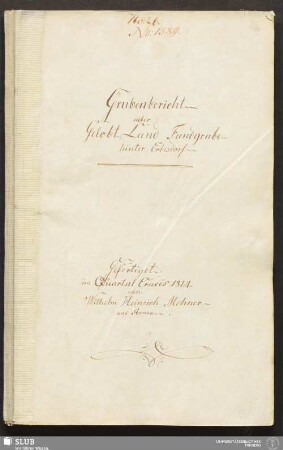 No. 1589.
Grubenbericht
über
Gelobt Land Fundgrube
hinter Erbisdorf
Gefertiget
im Quartal Crucis 1824.
von
Wilhelm Heinrich Mehner
aus
SLUB
Wir führen Wissen.
UNIVERSITÄTSBIBLIOTHEK
FREIBERG